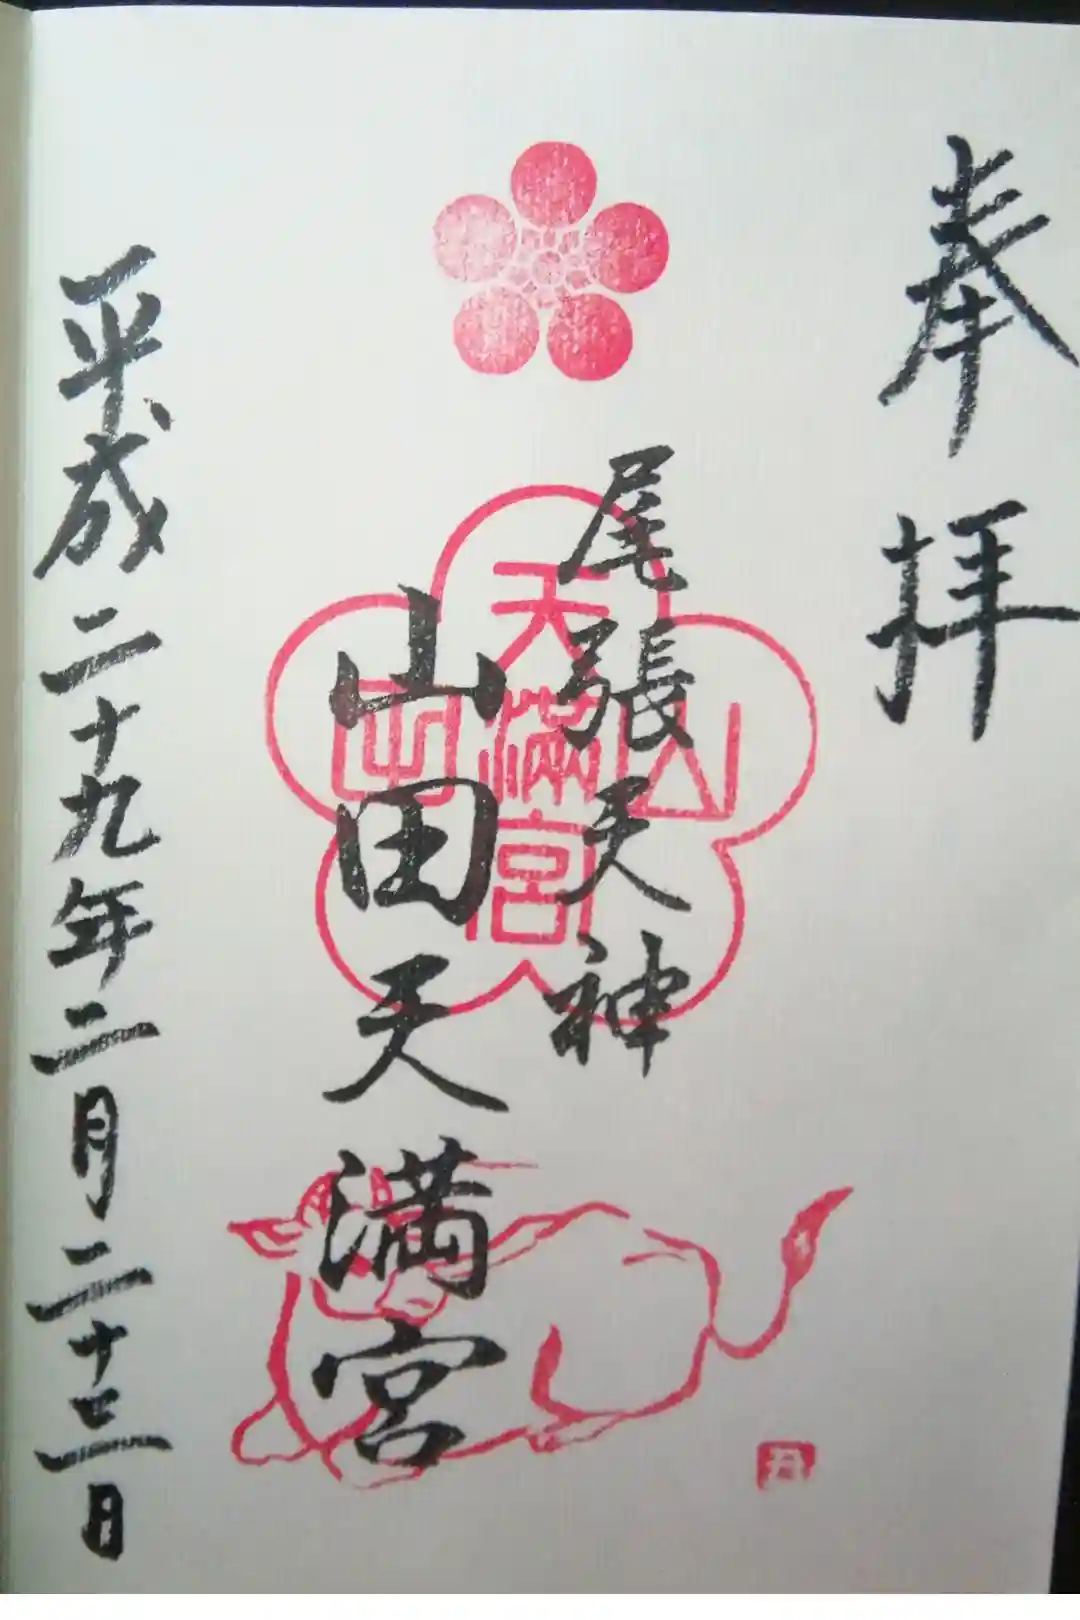 奉拝
尾張天神
山田天満宮
平成二十九年二月二十三日
山
天滿宮